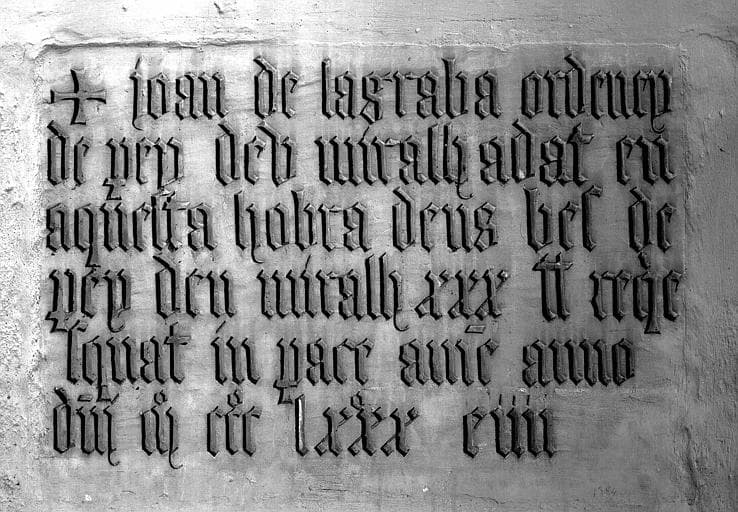 ✠ joan de lasraba ordeney
de pep deu miralh adat en
aquesta hobra deus ves de
pep den miralh xxx ₶ reqe
squat in pace amē anno
dm̄ m̊ ccc̊ lxxx̊ eiiii